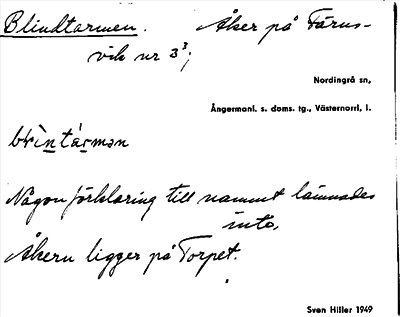 Blindtarmen. Åker på Färns-
vik nr 3³;
Nordingrå sn,
Ångermanl. s. doms. tg., Västernorrl, l.
Någon förklaring till namnet lämnades
inte.
Åkern ligger på Torpet.
Sven Hiller 1949